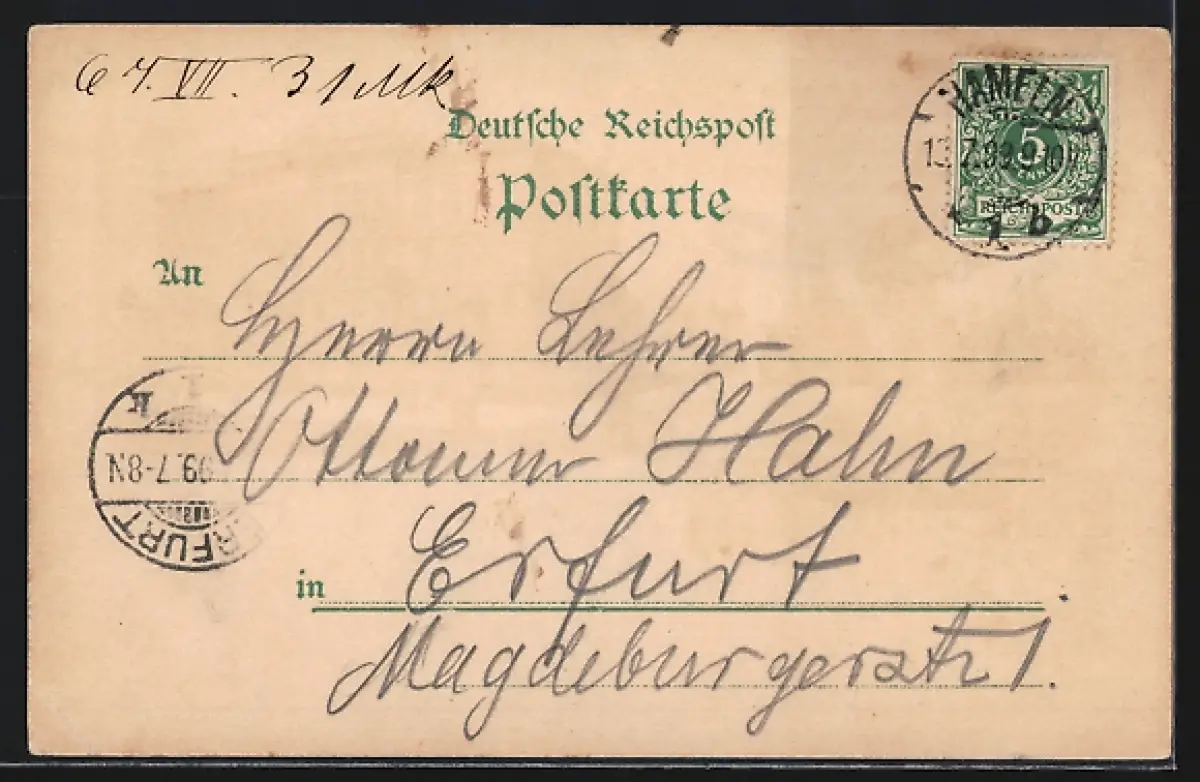 67. VII. 31 Mk
Deutsche Reichspost
Postkarte
HAMELN
13.7.99.9-10V.
* 1 b
5
REICHSPOST
An
Herrn Lehrer
Ottomar Hahn
99.7-8N
ERFURT
in
Erfurt
Magdeburgerstr 1.